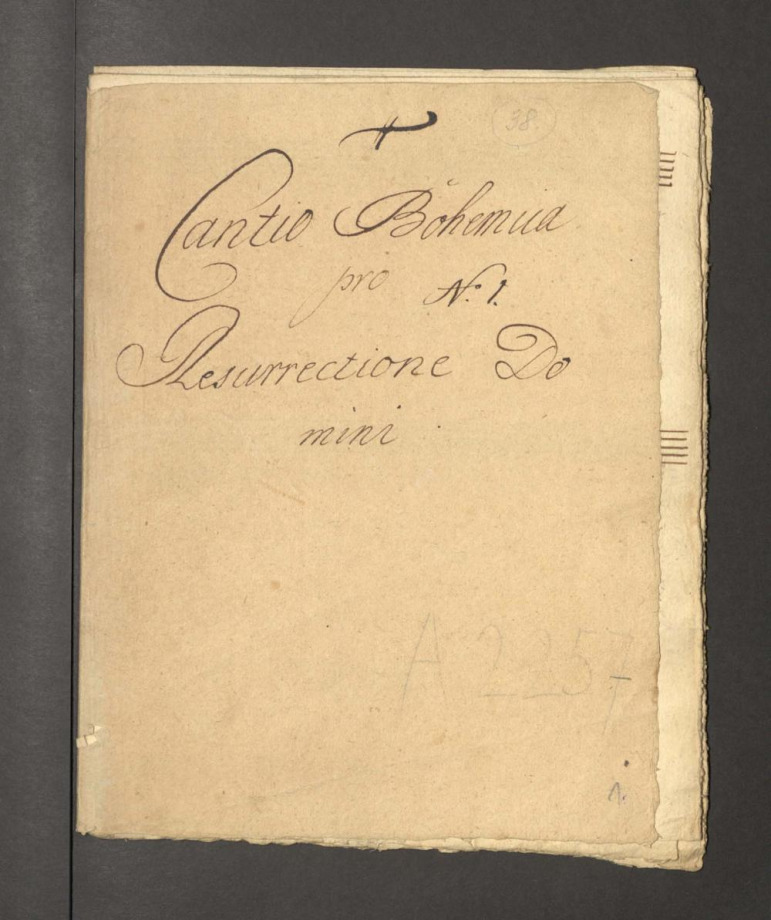 38.
Cantio Bohemica
pro No. 1.
Resurrectione Do
mini
A 2257
1.